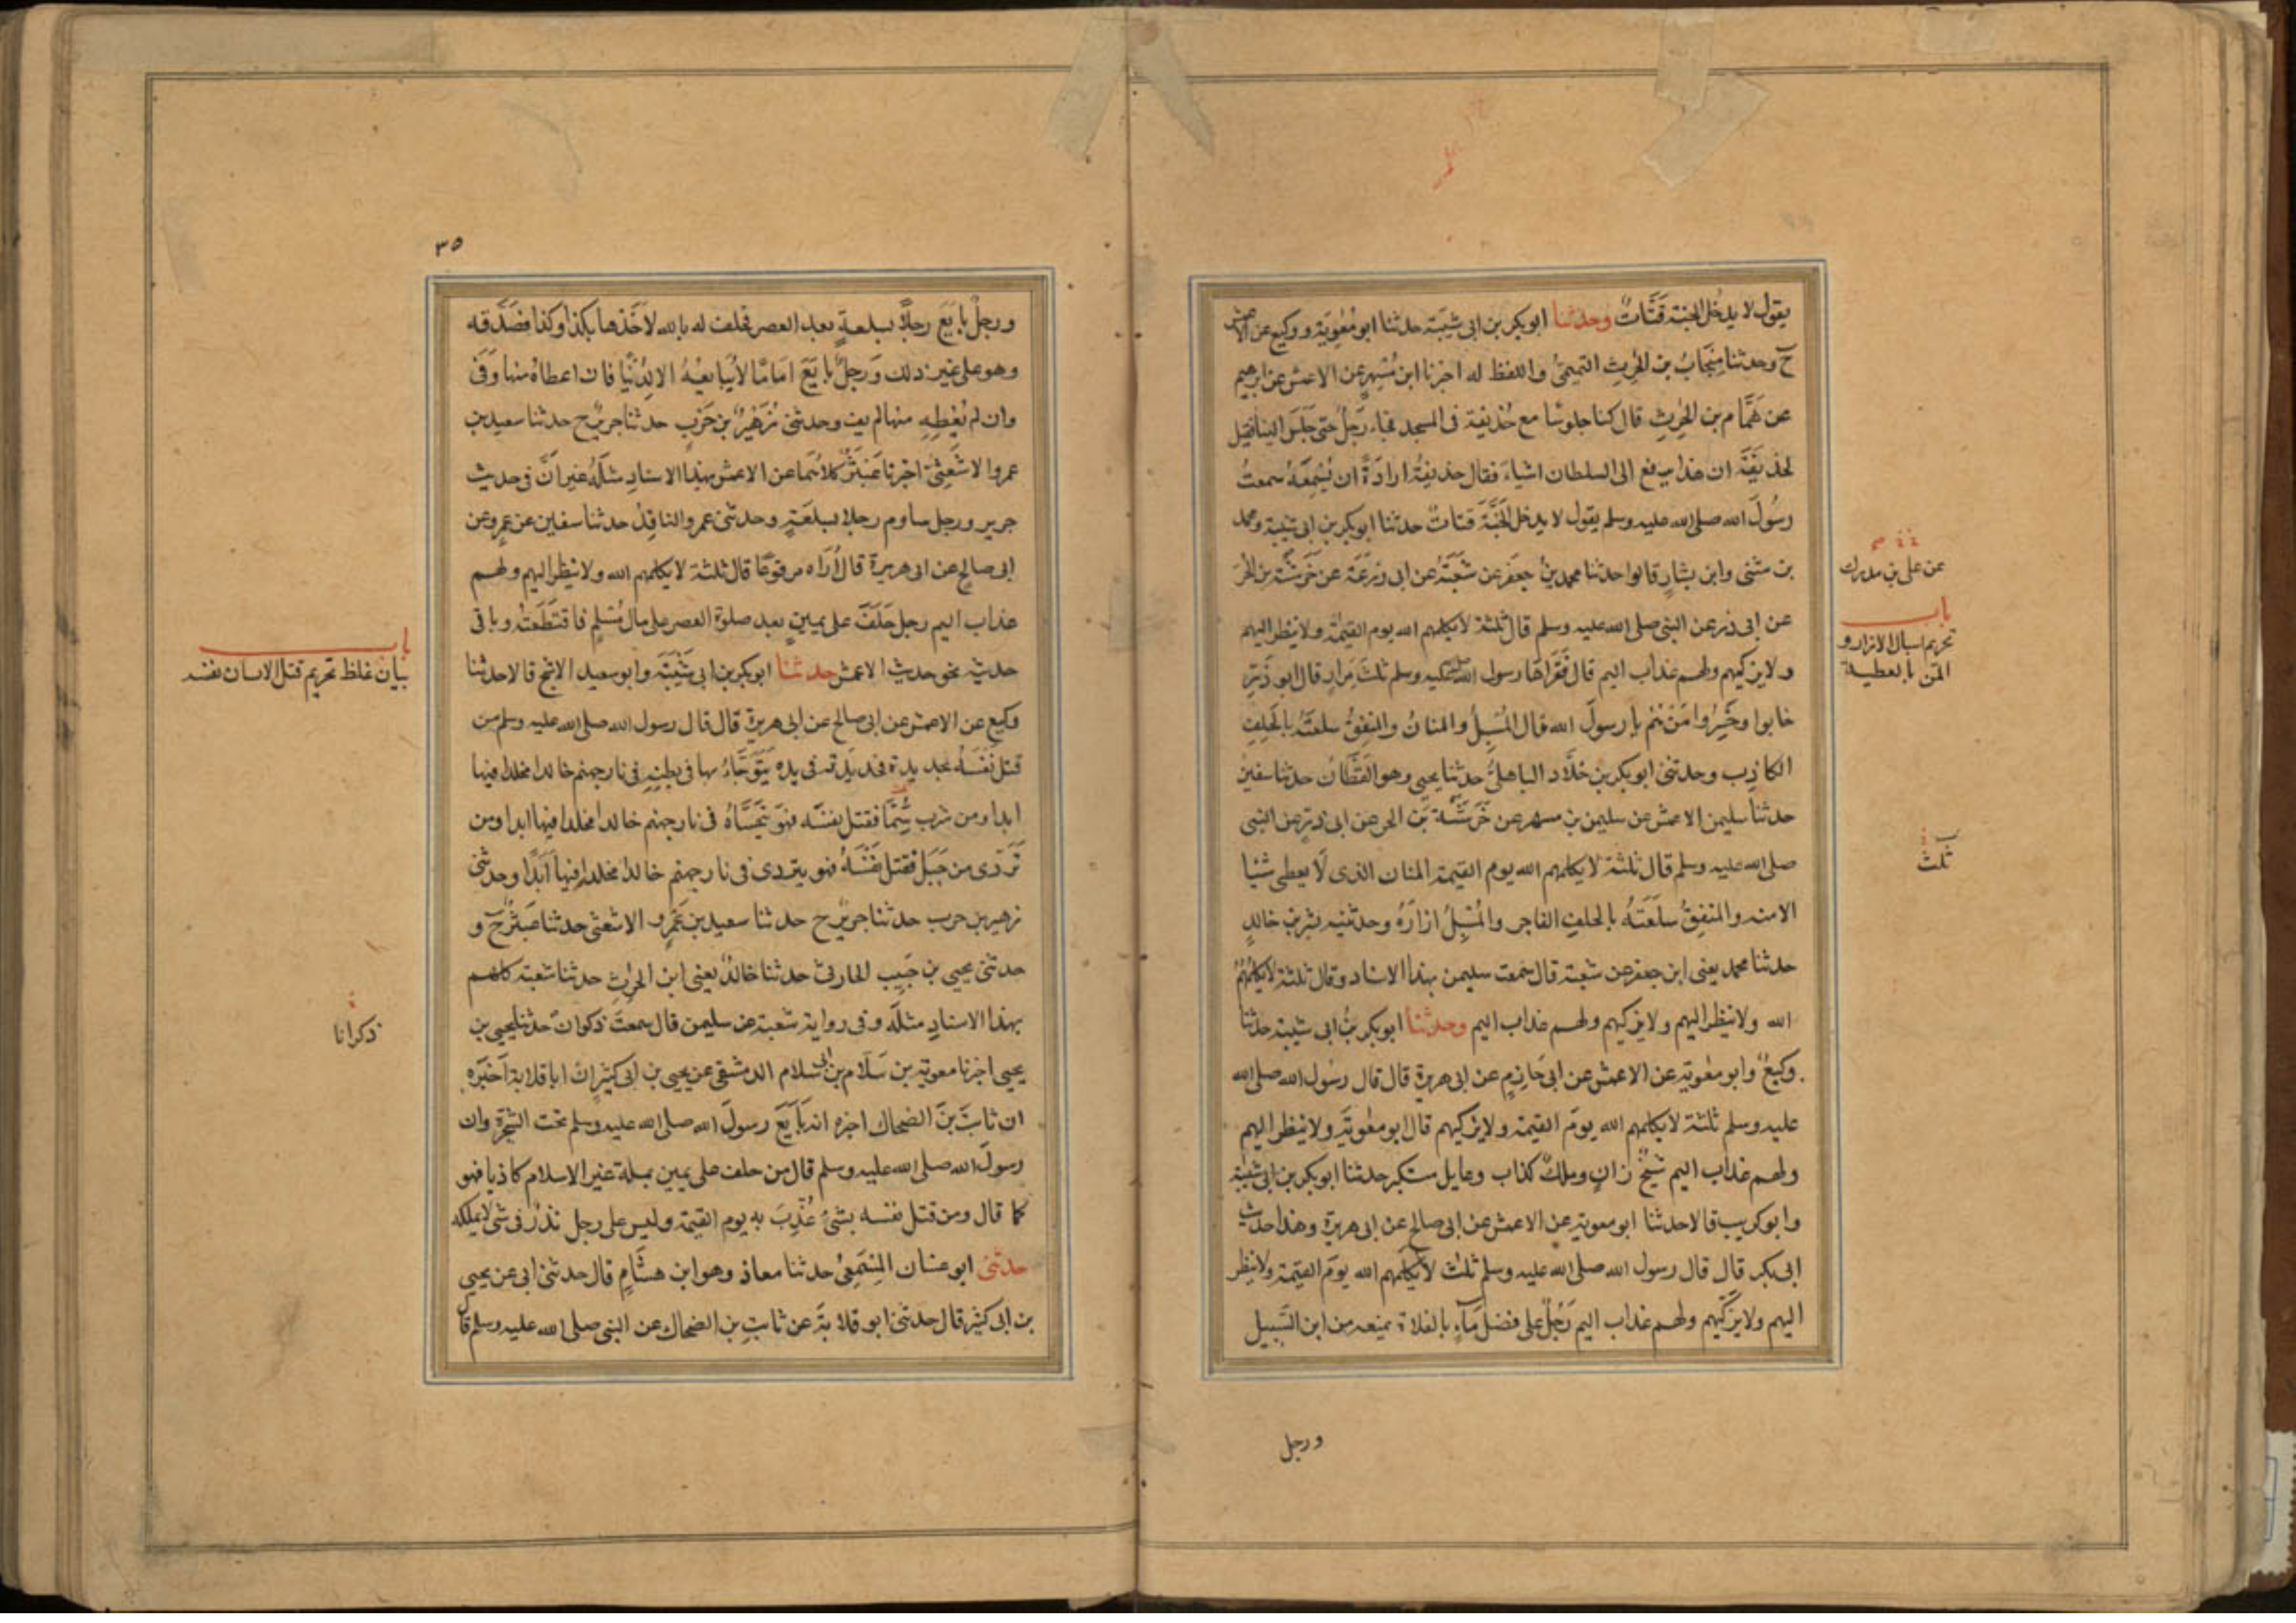 يقول لا يدخل الجنة قَتَّاتٌ وحدثنا ابوبكر بن ابى شَيْبَة حدثنا ابو مُعٰوِيَة ووكيع عن الاعمش
ح وحدثنا مِنجَابُ بن الحٰرِثِ التميمىُّ واللفظ له اخبرنا ابن مُسْهِرٍ عن الاعمش عن ابرهيم
عن هَمَّام بن الحٰرِثِ قال كنا جلوسًا مع حُذيفة فى المسجد فجاء رَجُلٌ حتى جَلَسَ الينا فقيل
لحذيفَةَ ان هذا يرفع الى السلطان اشياءَ فقال حذيفةُ ارادَةً ان يُسْمِعَهُ سمعتُ
رسُولَ الله صلى الله عليه وسلم يقول لا يدخل الجَنَّةَ قتاتٌ حدثنا ابوبكر بن ابى شيبة ومحمد
بن مثنى وابن بشارٍ قالوا حدثنا محمد بنُ جعفر عن شُعْبَةَ عن ابى زُرعَةَ عن خَرَشَةَ بن الحُرِّ
عن على بن مدرك
عن ابى ذر عن النبى صلى الله عليه وسلم قال ثلثة لا يكلمهم الله يوم القيمة ولا ينظر اليهم
باب
تحريم اسبال الازار و
المَنّ بالعطية
ولا يزكيهم ولهم عذاب اليم قال فَقَراها رسول الله صلى الله عليه وسلم ثلٰثَ مِرارٍ قال ابو ذَرٍّ
خابوا وخَسِرُوا مَنْ هُم يا رسولَ الله قال المُسْبِلُ والمنانُ والمُنفِقُ سلعتَهُ بالحَلِفِ
الكاذِب وحدثنى ابوبكر بن خَلَّاد الباهلىُّ حدثنا يحيى وهو القَطَّانُ حدثنا سفين
حدثنا سليمن الاعمش عن سليمن بن مسهر عن خَرَشَةَ بن الحر عن ابى ذرٍ عن النبى
صلى الله عليه وسلم قال ثلثة لا يكلمهم الله يوم القيمة المنان الذى لَا يعطى شئا
ثلث
الا منه والمنفِقُ سِلعَتَهُ بالحلفِ الفاجر والمُسْبِلُ ازارَهُ وحدثنيه بشر بن خالدٍ
حدثنا محمد يعنى ابن جعفر عن شعبة قال سمعت سليمن بهذا الاسناد وقال ثلثة لا يكلمُهُمُ
الله ولا ينظر اليهم ولا يزكيهم ولهم عذاب اليم وحدثنا ابوبكر بنُ ابى شيبة حدثنا
وكيعٌ وابو معٰوية عن الاعمش عن ابى حَازِمٍ عن ابى هريرة قال قال رسُول الله صلى الله
عليه وسلم ثلثة لا يكلمهم الله يومَ القيمة ولا يزكيهم قال ابو معٰويَة ولا ينظر اليهم
ولهم عذاب اليم شيخٌ زانٍ وملكٌ كذاب وعايل مستكبر حدثنا ابوبكر بن ابى شيبة
وابو كريب قالا حدثنا ابو معوية عن الاعمش عن ابى صالح عن ابى هريرة وهذا حديث
ابى بكر قال قال رسول الله صلى الله عليه وسلم ثلث لا يُكلِّمهم الله يومَ القيمة ولا ينظر
اليهم ولا يزكِّيهم ولهم عذاب اليم رَجُلٌ على فضل مَآءٍ بالفلاة يمنعه من ابن السَّبيل
ورجل
٣٥
ورجلٌ بايَعَ رجلًا بسلعةٍ بعد العصر فحلف له بالله لَاَخَذها بكذا وكذا فصَدَّقه
وهو على غير ذلك وَرجلٌ بايَعَ امَامًا لا يُبايعهُ الا لِدُنْيًا فان اعطاهُ منها وَفَى
وان لم يُعْطِهِ منها لم يفِ وحدثنى زُهَيْرُ بن حَرْبٍ حدثنا جريرٌ ح حدثنا سعيد بن
عمرو الاشْعَثِىُّ اخبرنا عَبْثَرٌ كلاهُما عن الاعمش بهذا الاسنادِ مثلَهُ غير اَنَّ فى حديث
جرير ورجل ساوم رجلا بسلعَةٍ وحدثنى عمرو الناقِدُ حدثنا سفين عن عمرو عن
ابى صالح عن ابى هريرة قال اُرَاه مرفوعًا قال ثلثة لا يكلمهم الله ولا ينظر اليهم ولهم
عذاب اليم رجل حَلَفَ على يمينٍ بعد صلوة العصر على مال مُسْلِمٍ فاقتَطَعَهُ وباقى
باب
بيان غلظ تحريم قتل الانسان نفسه
حديثه نحو حديث الاعمش حدثنا ابوبكر بن ابى شَيْبَةَ وابو سعيد الاشج قالا حدثنا
وكيع عن الاعمش عن ابى صالح عن ابى هريرة قال قال رسول الله صلى الله عليه وسلم من
قتل نَفْسَهُ بحديدة فحديدَته فى يده يَتَوَجَّاءُ بها فى بطنِهِ فى نار جهنم خالدا مخلدا فيها
ابدا ومن شرب سُمًّا فقتل نفسَه فهوَ يَتَحَسَّاهُ فى نار جهنم خالدا مخلدا فيها ابدا ومن
تَرَدى من جَبَلٍ فقتل نَفْسَهُ فهو يتردى فى نار جهنم خالدا مخلدا فيها اَبَدًا وحدثنى
زهير بن حرب حدثنا جريرٌ ح حدثنا سعيد بن عَمْرٍو الاشعثى حدثنا عَبثَرٌ ح و
حدثنى يحيى بن حَبِيب الحارثى حدثنا خالدٌ يعنى ابن الحٰرِثِ حدثنا شعبة كلهم
بهذا الاسنادِ مثلَه وفى رواية شعبة عن سليمن قال سمعتُ ذكوانَ حدثنا يحيى بن
ذكرانا
يحيى اخبرنا معوية بن سَلَام بن ابى سلام الدمشقى عن يحيى بن ابى كثير ان ابا قلابة اَخْبَرَه
ان ثابتَ بنَ الضحاك اخبره انه بَايَعَ رسولَ الله صلى الله عليه وسلم تحت الشجرة وان
رسولَ الله صلى الله عليه وسلم قال من حلف على يمين بملة غير الاسلام كاذبا فهو
كما قال ومن قتل نفسه بشئٍ عُذِّبَ به يوم القيمة وليس على رجل نذرٌ فى شئ لا يملكه
حدثنى ابو غسان المِسْمَعِىُّ حدثنا معاذ وهو ابن هشَامٍ قال حدثنى ابى عن يحيى
بن ابى كثير قال حدثنى ابو قلابَةَ عن ثابتِ بن الضحاك عن النبى صلى الله عليه وسلم قال